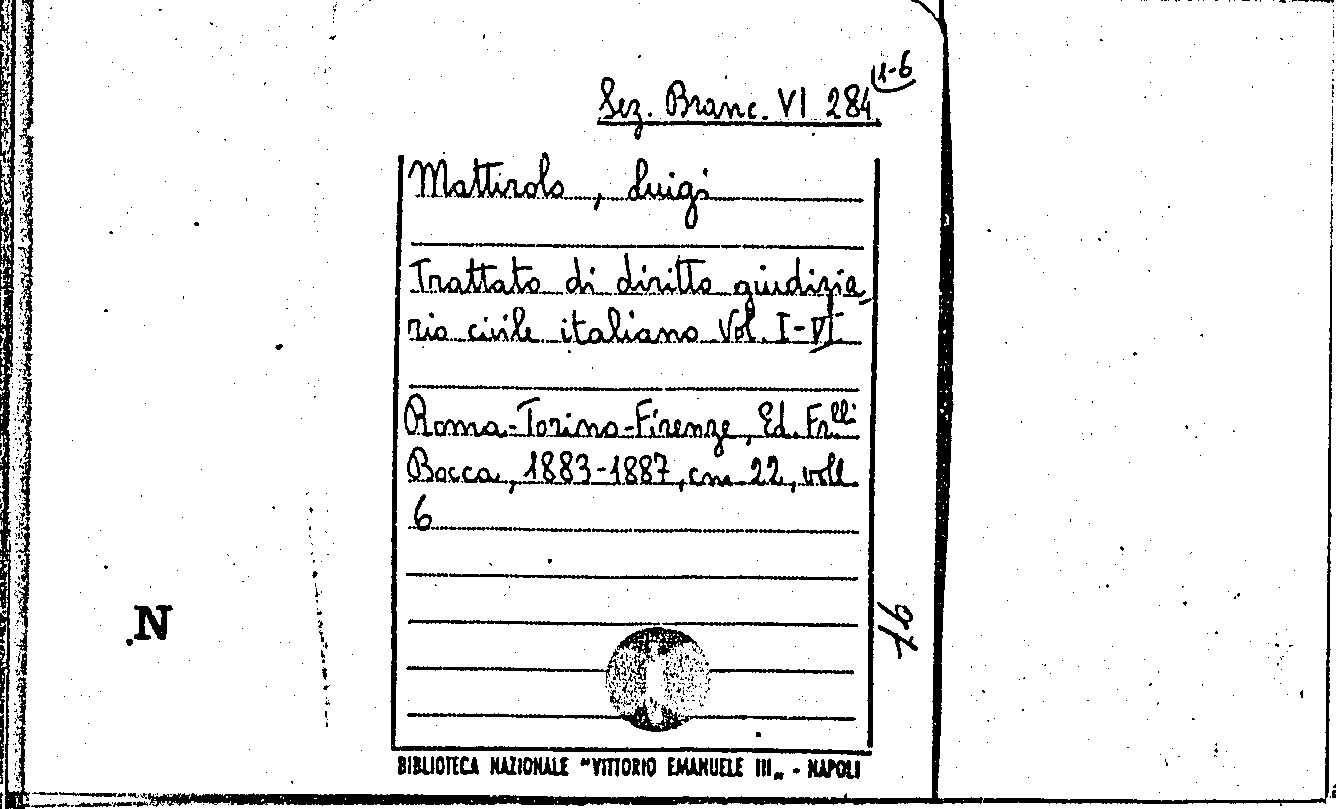 Sez. Branc. VI 284 (1-6
Mattirolo, Luigi
Trattato di diritto giudizia
rio civile italiano Vol. I-VI
Roma-Torino-Firenze, Ed. Fr.lli
Bocca, 1883-1887, cm 22, voll
6
N
76
BIBLIOTECA NAZIONALE "VITTORIO EMANUELE III„ - NAPOLI